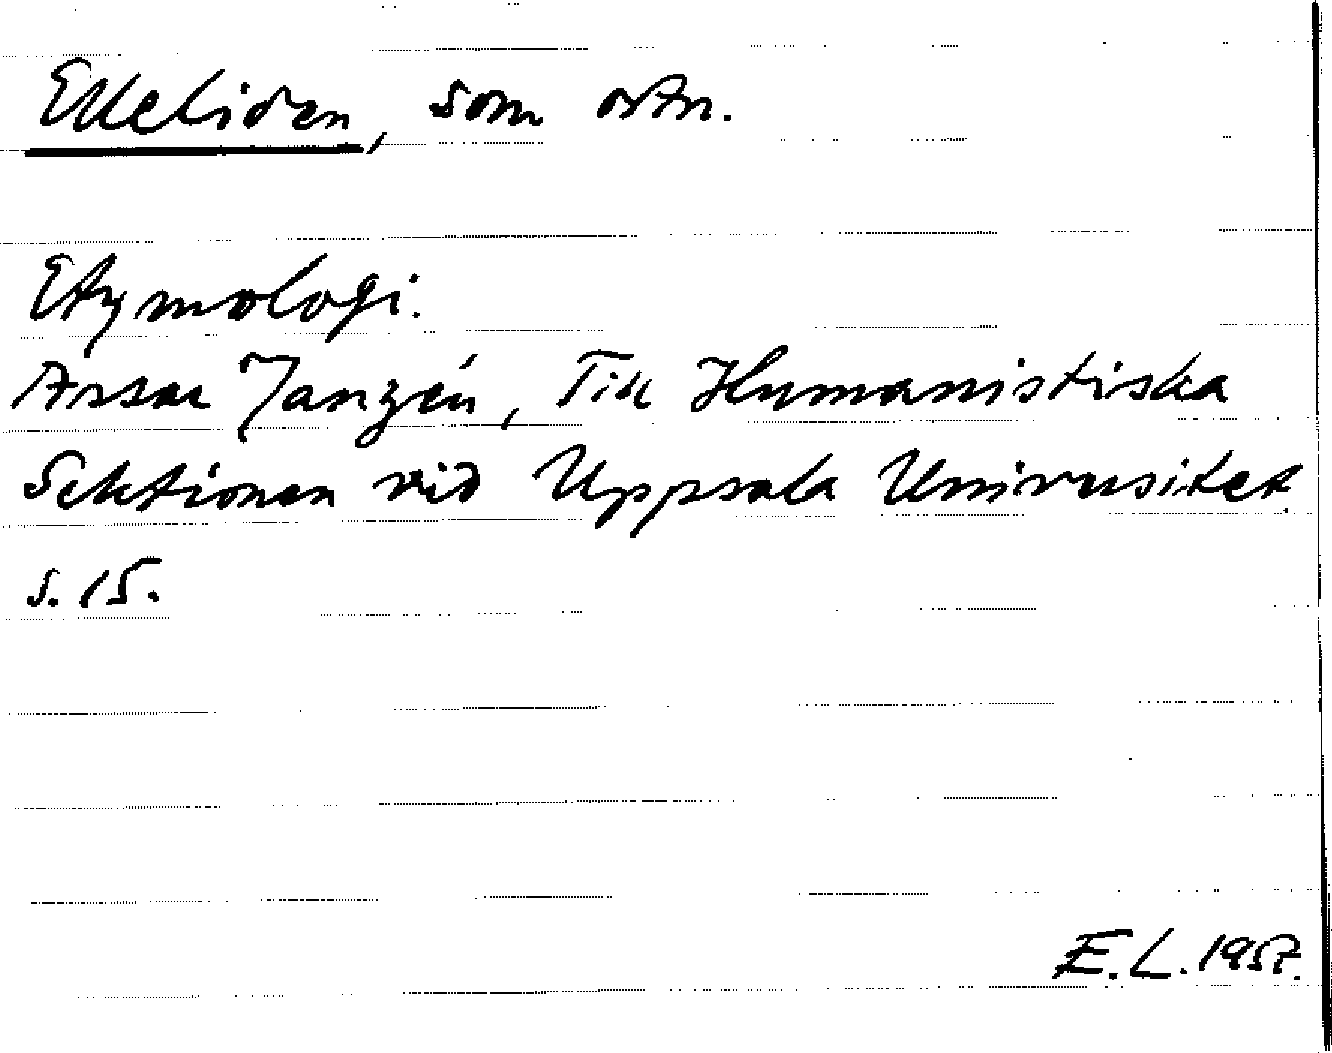 Ekeliden, som ortn.
Etymologi.
Assar Janzén, Till Humanistiska
Sektionen vid Uppsala Universitet
s. 15.
E.L. 1957.